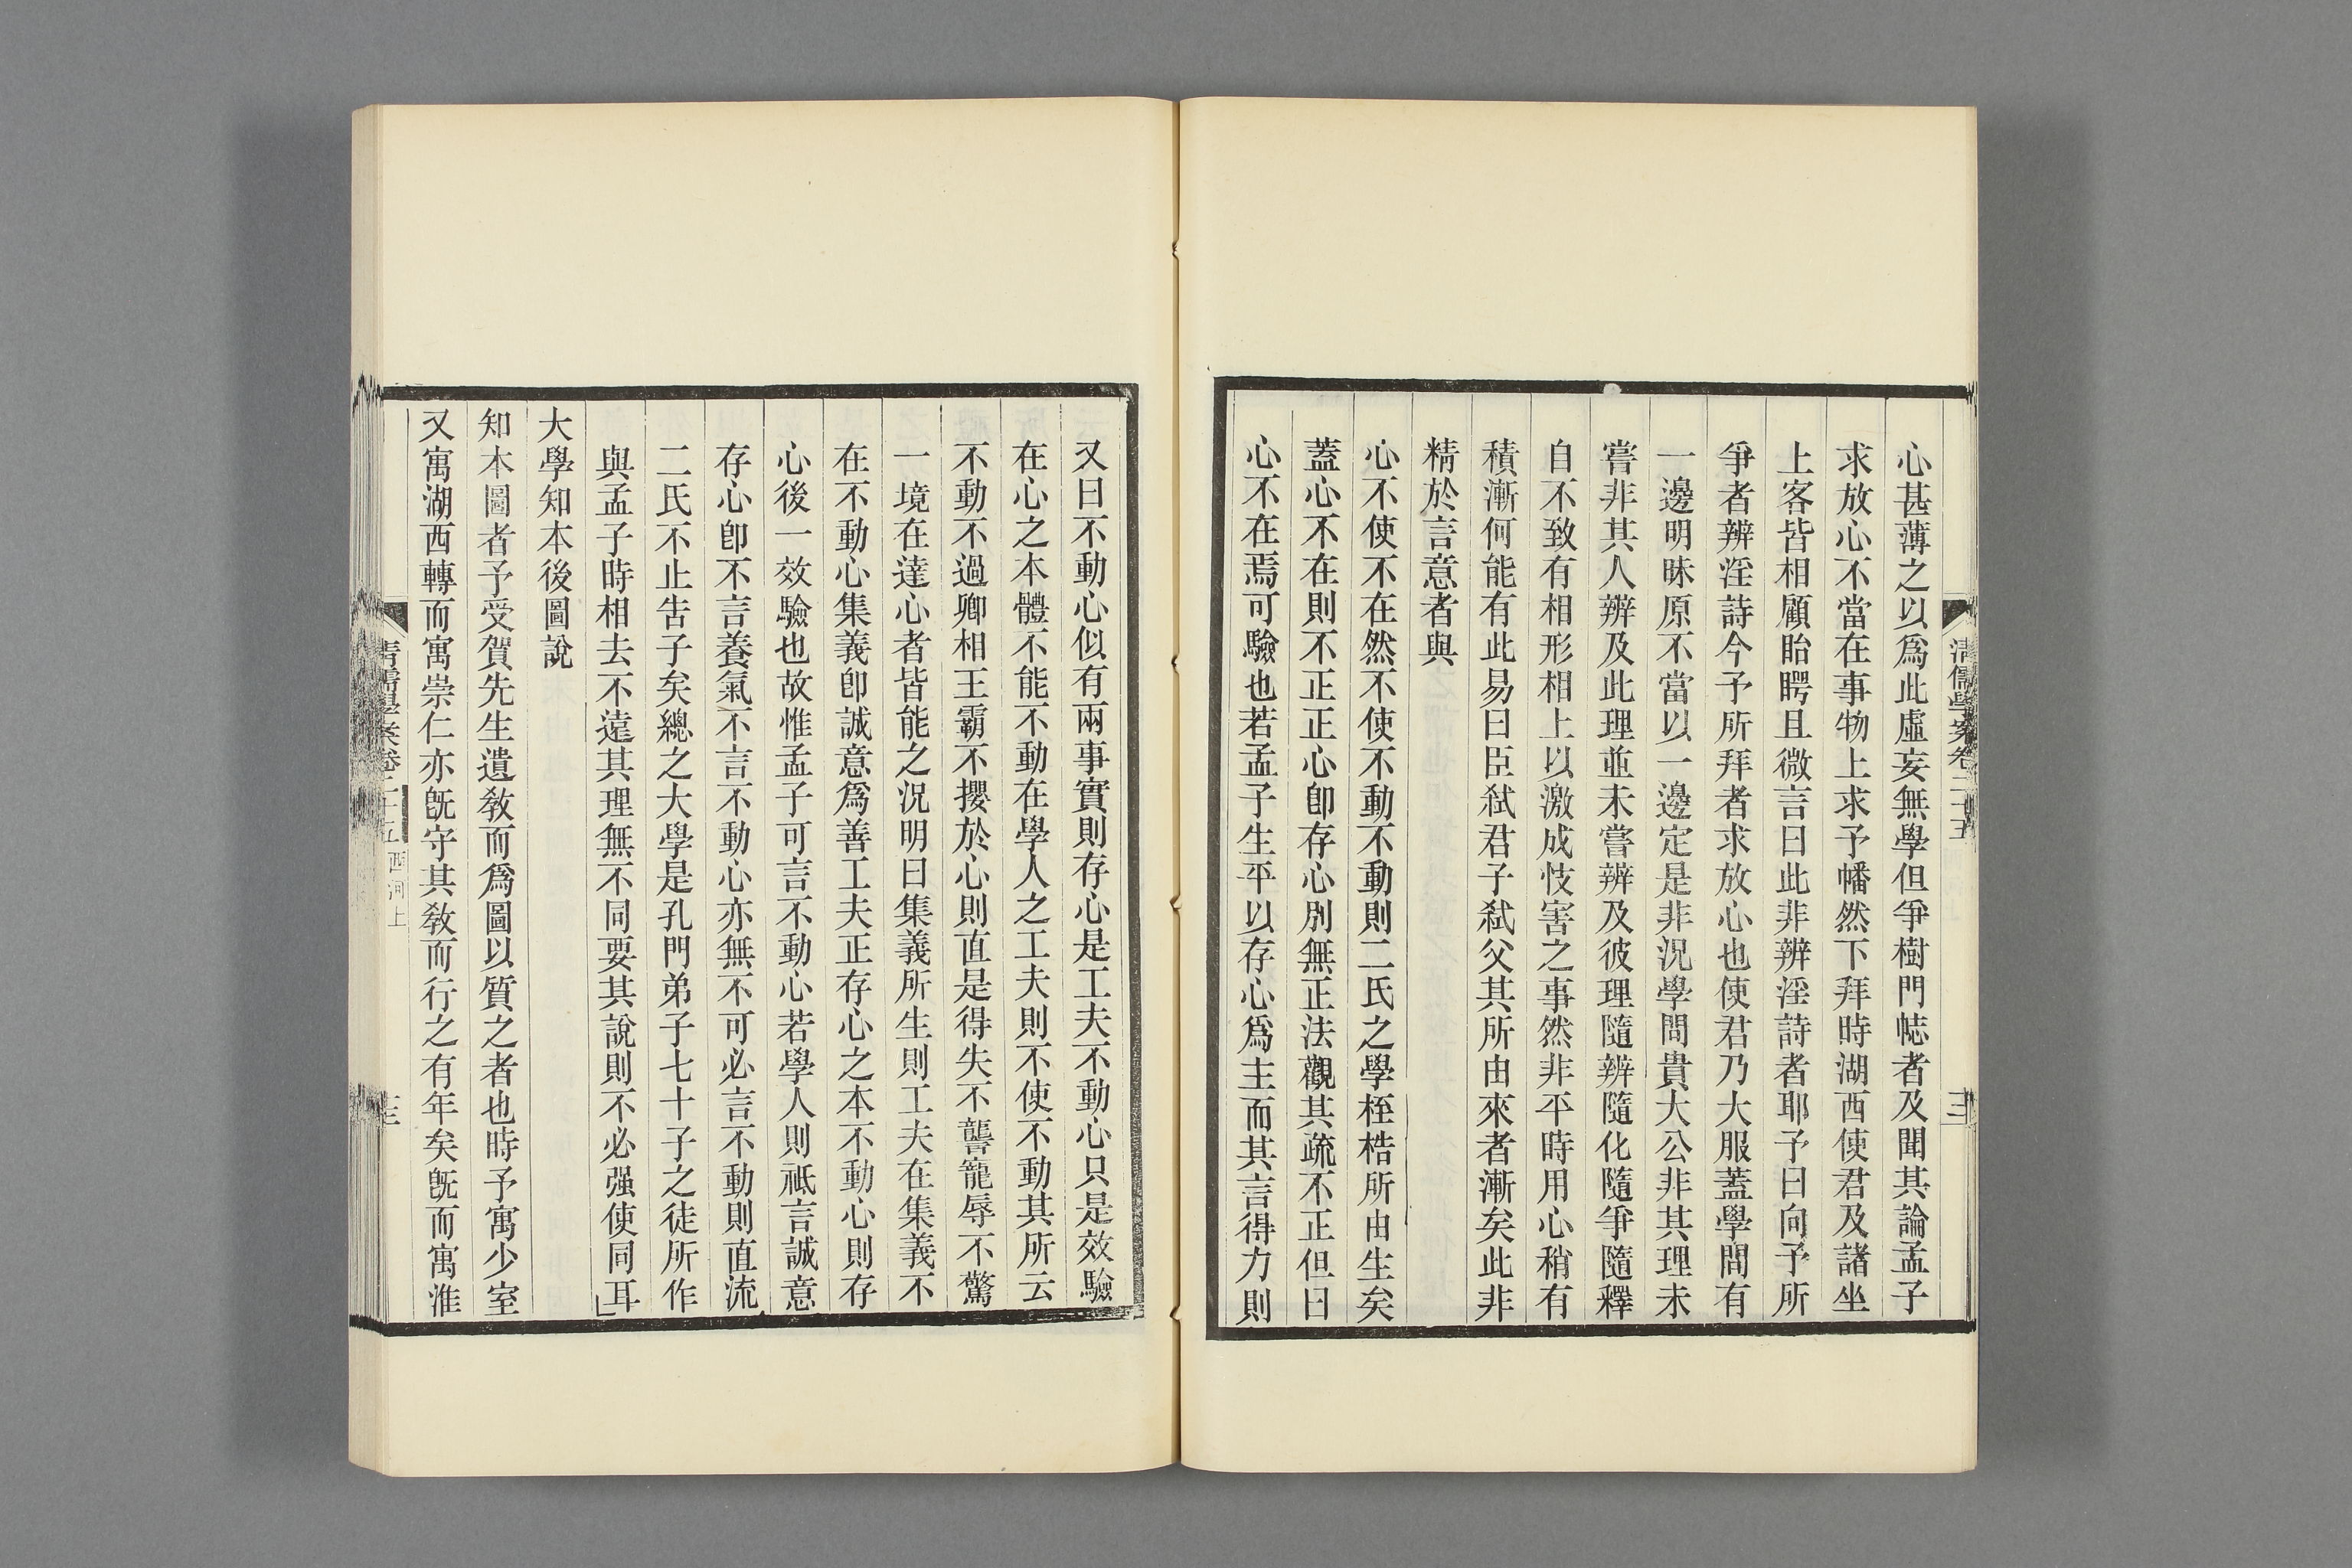 清儒學案卷二十五
心甚薄之以爲此虛妄無學但爭樹門幟者及聞其論孟子
求放心不當在事物上求予幡然下拜時湖西使君及諸坐
上客皆相顧眙腭且微言曰此非辨淫詩者耶予曰向予所
爭者辨淫詩今予所拜者求放心也使君乃大服蓋學問有
一邊明昧原不當以一邊定是非況學問貴大公非其理未
嘗非其人辨及此理並未嘗辨及彼理隨辨隨化隨爭隨釋
自不致有相形相上以激成忮害之事然非平時用心稍有
積漸何能有此易曰臣弑君子弑父其所由來者漸矣此非
精於言意者與
心不使不在然不使不動不動則二氏之學桎梏所由生矣
蓋心不在則不正正心卽存心別無正法觀其疏不正但曰
心不在焉可驗也若孟子生平以存心爲主而其言得力則
又曰不動心似有兩事實則存心是工夫不動心只是效驗
在心之本體不能不動在學人之工夫則不使不動其所云
不動不過卿相王霸不攖於心則直是得失不讋寵辱不驚
一境在達心者皆能之況明曰集義所生則工夫在集義不
在不動心集義卽誠意爲善工夫正存心之本不動心則存
心後一效驗也故惟孟子可言不動心若學人則祗言誠意
存心卽不言養氣不言不動心亦無不可必言不動則直流
二氏不止告子矣總之大學是孔門弟子七十子之徒所作
與孟子時相去不遠其理無不同要其說則不必强使同耳
大學知本後圖說
知本圖者予受賀先生遺教而爲圖以質之者也時予寓少室
又寓湖西轉而寓崇仁亦旣守其教而行之有年矣旣而寓淮
清儒學案卷二十五 西河上